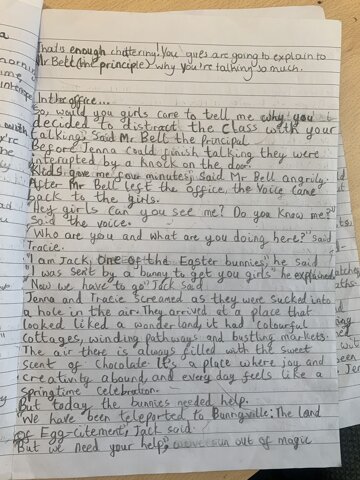 That is enough chattering! You gies are going to explain to
Mr Bell (the principle) why you're talking so much.
In the office...
So, would you girls care to tell me why you
decided to distract the class with your
talking, Said Mr Bell the Principal
Before Jenna could finish talking they were
interupted by a knock on the door.
"Kids give me four minutes, Said Mr Bell angrily.
After Mr Bell left the office, the voice cane
back to the girls.
"Hey girls can you see me? Do you know me?"
Said the voice.
"Who are you and what are you doing here?" said
Tracie.
"I am Jack, one of the Easter bunnies," he said
"I was sent by a bunny to get you girls" he explained
"Now we have to go" Jack said
Jenna and Tracie screamed as they were sucked into
a hole in the air. They arrived at a place that
looked liked a wonderland, it had colourful
cottages, winding pathways and bustling markets.
The air there is always filled with the sweet
scent of chocolate. It's a place where joy and
creativity abound, and every day feels like a
springtime celebration.
But today the bunnies needed help.
"We have been teleported to Bunnyville: The land
of Egg-citement, Jack said.
"But we need your help, out of magic